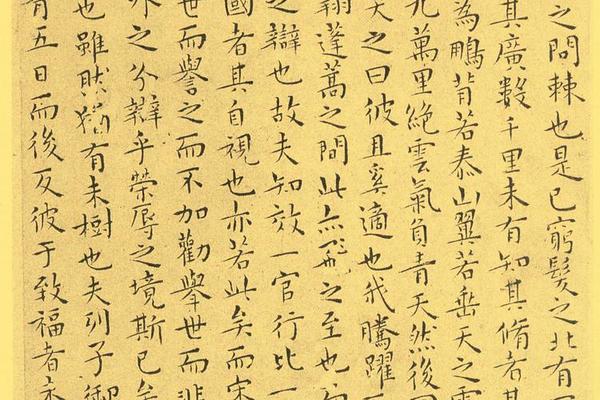 之問棘也是已窮髮之北有
其廣數千里未有知其脩者其
為鵬背若泰山翼若垂天之雲
九萬里絕雲氣負青天然後
笑之曰彼且奚適也我騰躍
翔蓬蒿之間此亦飛之至也
之辯也故夫知效一官行比一
國者其自視也亦若此矣而宋
世而譽之而不加勸舉世而非
外之分辯乎榮辱之境斯已矣
也雖然猶有未樹也夫列子御
有五日而後反彼于致福者未